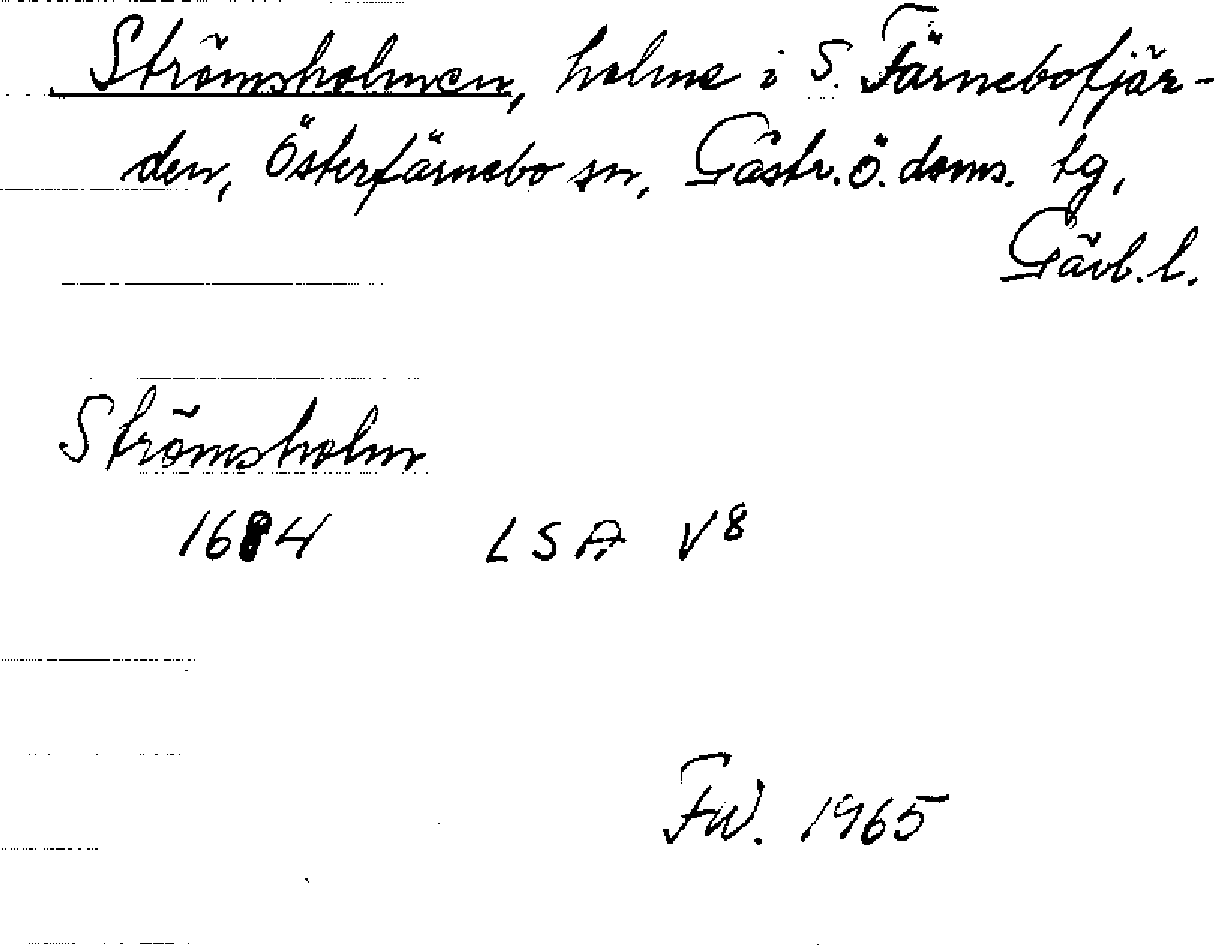 Strömsholmen, holme i S. Färnebofjär-
den, Österfärnebo sn, Gästr. ö. doms. tg,
Gävb. l.
Strömsholm
1684 LSA V8
FW. 1965